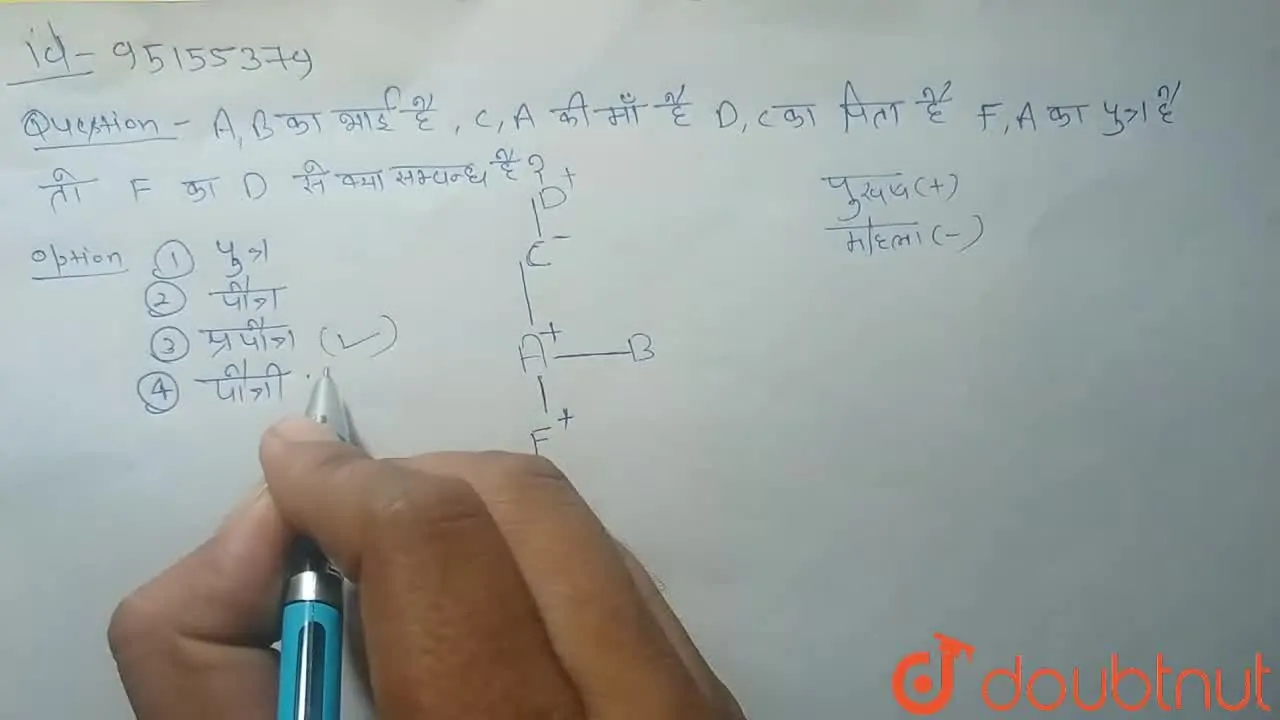 id- 95155379
Question - A, B का भाई है, C, A की माँ है D, C का पिता है F, A का पुत्र है
तो F का D से क्या सम्बन्ध है ?
पुरुष (+)
महिला (-)
Option ① पुत्र
② पौत्र
③ प्रपौत्र (✓)
④ पौत्री
D +
C -
A + B
F +
doubtnut